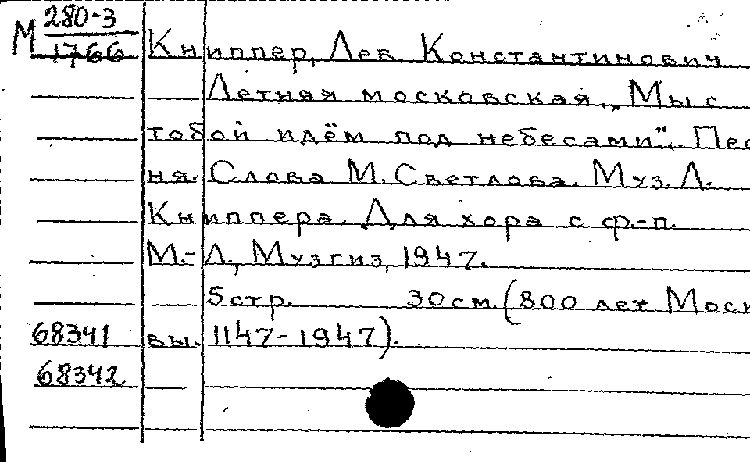 М 280-3
1766
Книппер, Лев Константинович
Летная московская. „Мы с
тобой идём под небесами". Пес
ня. Слова М. Светлова. Муз. Л.
Книппера. Для хора с ф.-п.
М.-Л., Музгиз, 1947.
5 стр. 30 см. (800 лет Моск
68341 вы. 1147-1947).
68342